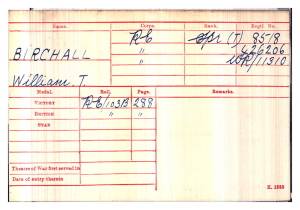 Name. Corps. Rank. Regtl. No.
BIRCHALL RE Spr (T) 8518
" 426206
" WR/11310
William. T.
Medal. Roll. Page. Remarks.
VICTORY RE/103B 288
BRITISH " "
STAR
Theatre of War first served in
Date of entry therein
K. 1380